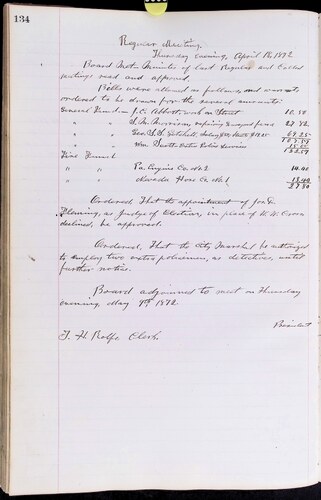 134
Regular Meeting.
Thursday evening, April 18, 1872
Board met. Minutes of last Regular and Called
meetings read and approved.
Bills were allowed as follows, and warrants
ordered to be drawn for the several amounts:
General Fund in J. C. Abbott, work on Street 10.50
" " repairing 27.72
" " Geo. S. Getchell, 69.25
" " Wm. Scott, Extra Police Services
Fire Fund
" " Pa. Engine Co. No. 2 14.40
" " Nevada Hose Co. No. 1 13.40
27.80
Ordered, That the appointment of
Fleming, as Judge of Election, in place of W. W. Cross
declined, be approved.
Ordered, That the City Marshal be authorized
to employ two extra policemen, as detectives, until
further notice.
Board adjourned to meet on Thursday
evening, May 9th 1872.
President
T. H. Rolfe Clerk.